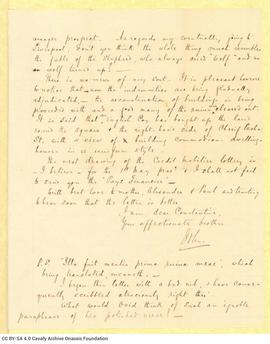 meagre prospect. As regards my eventually going to
Liverpool, don't you think the whole thing much resembles
the fable of the Shepherd, who always cried "wolf" and no
wolf turned up?
There is no news of any sort. It is pleasant however
to notice that now the indemnities are being gradually
adjudicated, the reconstruction of buildings is being
proceeded with and a good many of the ruins cleared out.
It is said that English Coy. has bought up the land
round the square & the right hand side of Cherif Pasha
St. with a view of building commodious dwelling-
houses in a uniform style.
The next drawing of the Credit lottery is
- I believe - for the 1st May prox° & I shall not fail
to send you the
With best love to mother, Alexander & Paul and hoping
to hear soon that the latter is better
I am dear Constantine,
Your affectionate brother
P.S. "Illa fuit mentis prima ruina meae", which
being translated, meaneth. -
I began this letter with a bad nib, & have conse-
quently scribbled atrociously right thro'.
What would Ovid think of such an ignoble
paraphrase of his polished verse! -
CC BY-SA 4.0 Cavafy Archive Onassis Foundation